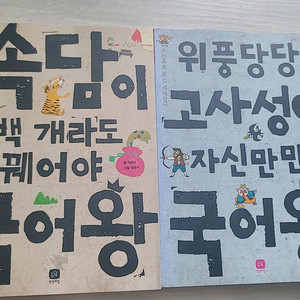 속담이
백 개라도
꿰어야
국어왕
위풍당당
고사성어
자신만만
국어왕